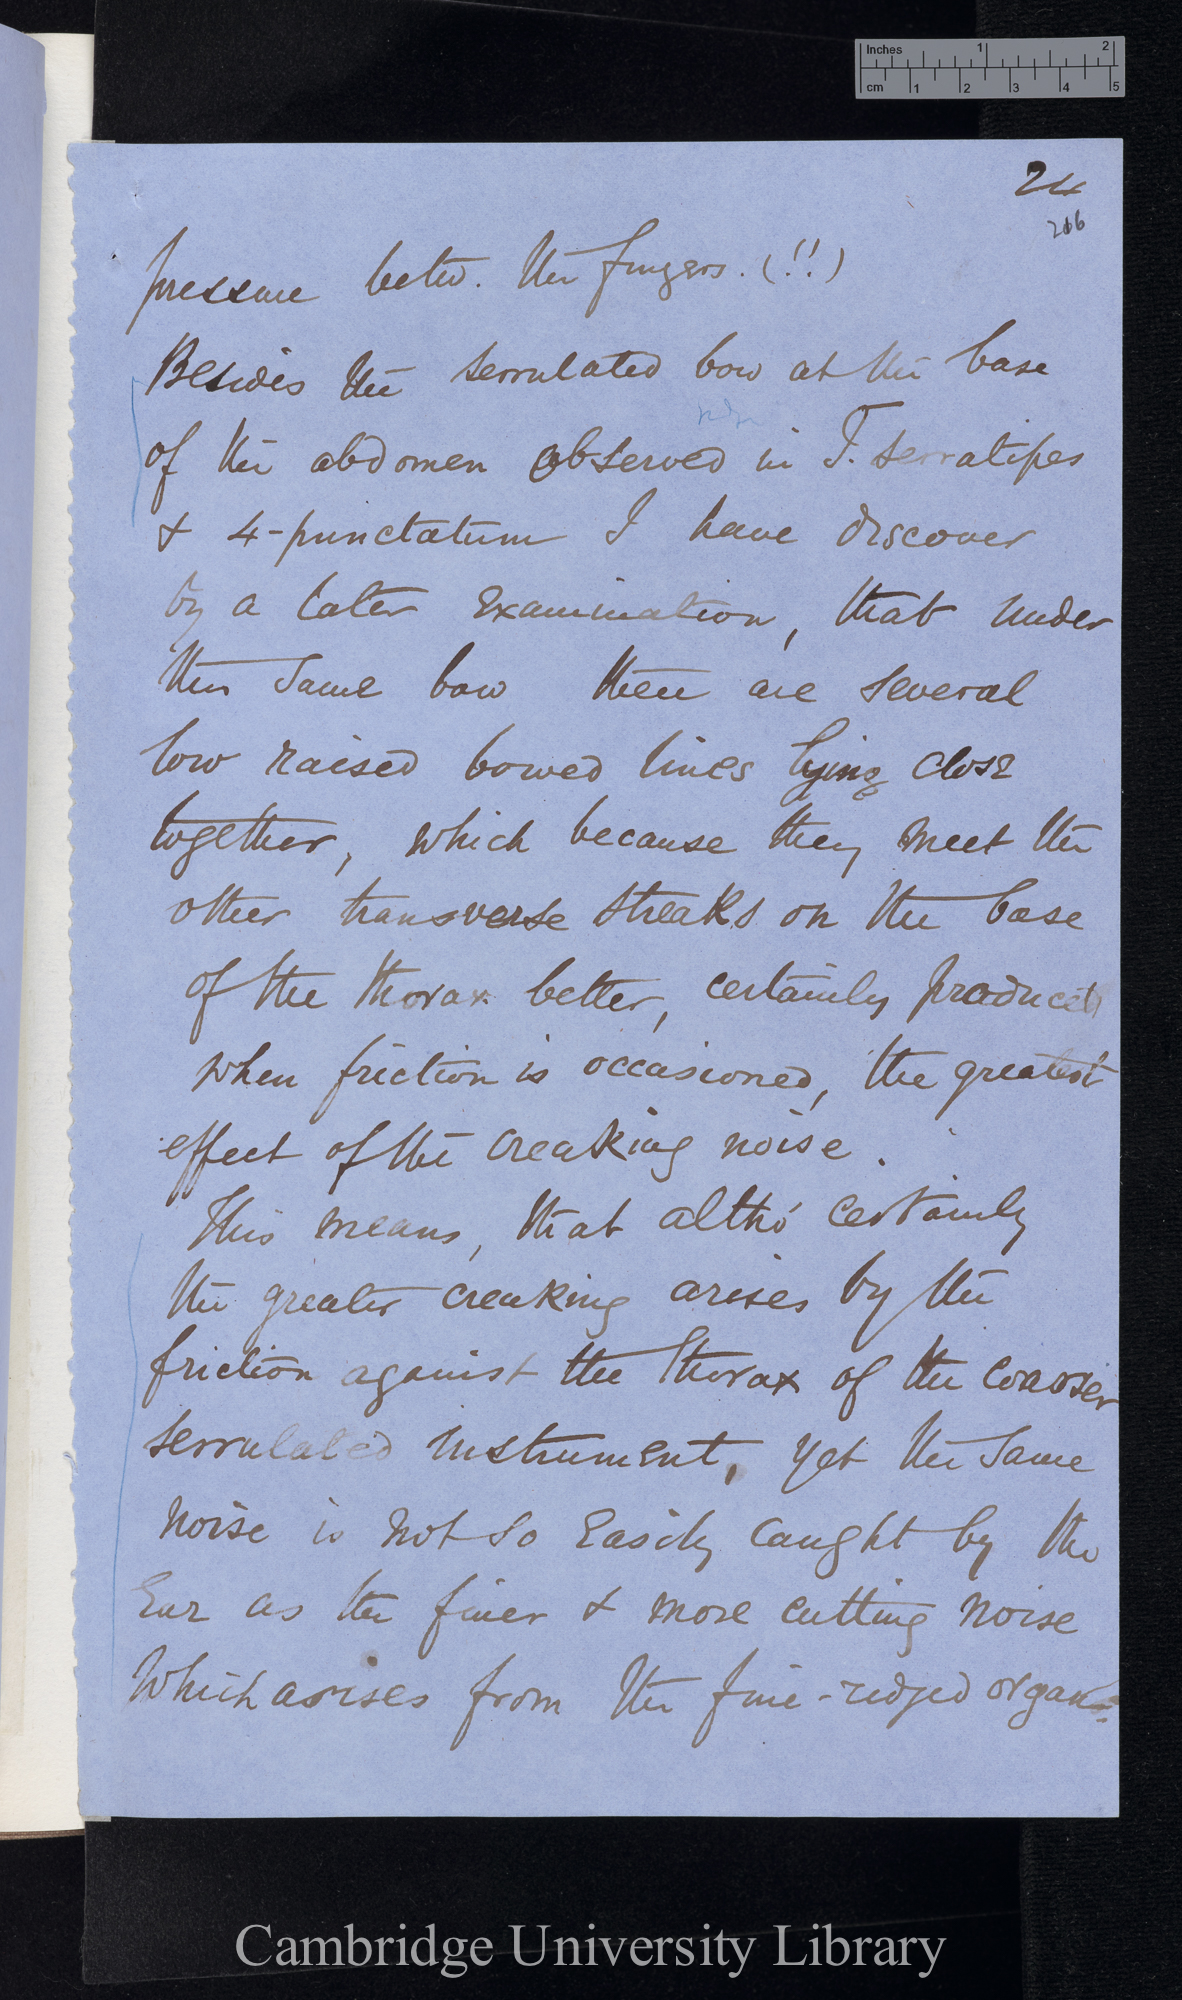 Inches 1 2
cm 1 2 3 4 5
24
206
pressure betw. the fingers. (!!)
Besides the serrulated bow at the base
of the abdomen observed in T. serratipes
& 4-punctatum I have discover
by a later examination, that under
this same bow there are several
low raised bowed lines lying close
together, which because they meet the
other transverse streaks on the base
of the thorax better, certainly produce
when friction is occasioned, the greatest
effect of the creaking noise.
This means, that altho' certainly
the greater creaking arises by the
friction against the thorax of the coarser
serrulated instrument, yet the same
noise is not so easily caught by the
Ear as the finer & more cutting noise
which arises from the fine-ridged organs.
Cambridge University Library